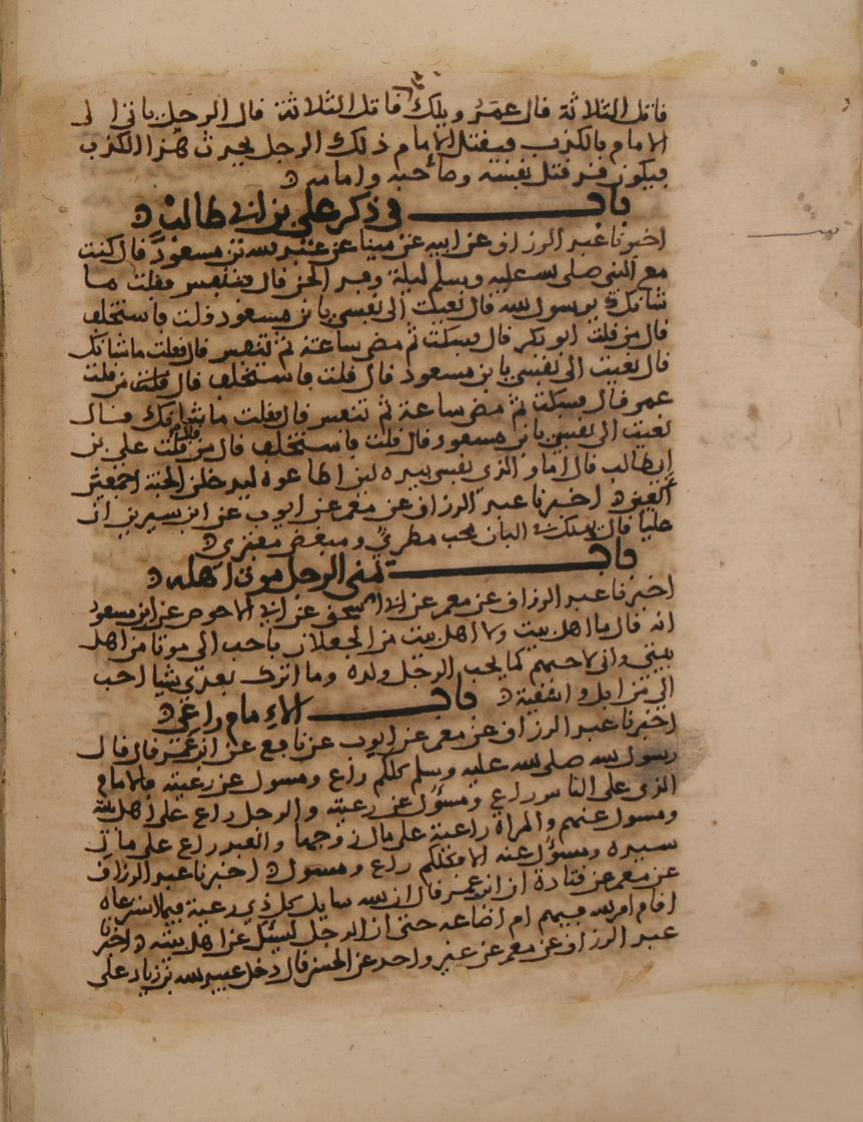 قاتل الثلاثة قال عمر ويلك قاتل الثلاثة قال الرجل ياتي الى
الامام بالكذب فيقتل الامام ذلك الرجل بحديث هذا الكذب
فيكون قد قتل نفسه وصاحبه وامامه
باب في ذكر علي بن ابي طالب
اخبرنا عبد الرزاق عن ابيه عن مينا عن عبد الله بن مسعود قال كنت
مع النبي صلى الله عليه وسلم ليلة وفد الجن قال فتنفس فقلت ما
شانك يرسول الله قال نعيت الى نفسي يا بن مسعود قلت فاستخلف
قال من قلت ابو بكر قال فسكت ثم مضى ساعة ثم تنفس قال فقلت ما شانك
قال نعيت الى نفسي يا بن مسعود قال قلت فاستخلف قال من قلت
عمر قال فسكت ثم مضى ساعة ثم تنفس قال فقلت ما شانك قال
نعيت الى نفسي يا بن مسعود قال قلت فاستخلف قال من قلت علي بن
ابي طالب قال اما والذي نفسي بيده لين اطاعوه ليدخلن الجنة اجمعين
اكتعين اخبرنا عبد الرزاق عن معمر عن ايوب عن ابن سيرين ان
عليا قال يهلك في اثنان محب مطري ومبغض مفتري
باب تمنى الرجل موت اهله
اخبرنا عبد الرزاق عن معمر عن ابي اسحق عن ابي الاحوص عن ابن مسعود
انه قال ما اهل بيت ولا اهل بيت من الجعلان باحب الى موتا من اهل
بيتي واني لاحبهم كما يحب الرجل ولده وما اترك بعدي شيا احب
الي من ابل وانفقية باب الامام راعي
اخبرنا عبد الرزاق عن معمر عن ايوب عن نافع عن ابن عمر قال قال
رسول الله صلى الله عليه وسلم كلكم راع ومسول عن رعيته فالامام
الذي على الناس راع ومسؤل عن رعيته والرجل راع على اهل بيته
ومسول عنهم والمراة راعية على مال زوجها والعبد راع على مال
سيده ومسؤل عنه الا فكلكم راع ومسول اخبرنا عبد الرزاق
عن معمر عن قتادة ان ابن عمر قال ان الله سايل كل ذي رعية فيما استرعاه
اقام امر الله فيهم ام اضاعه حتى ان الرجل ليسئل عن اهل بيته اخبرنا
عبد الرزاق عن معمر عن غير واحد عن الحسن قال دخل عبيد الله بن زياد على